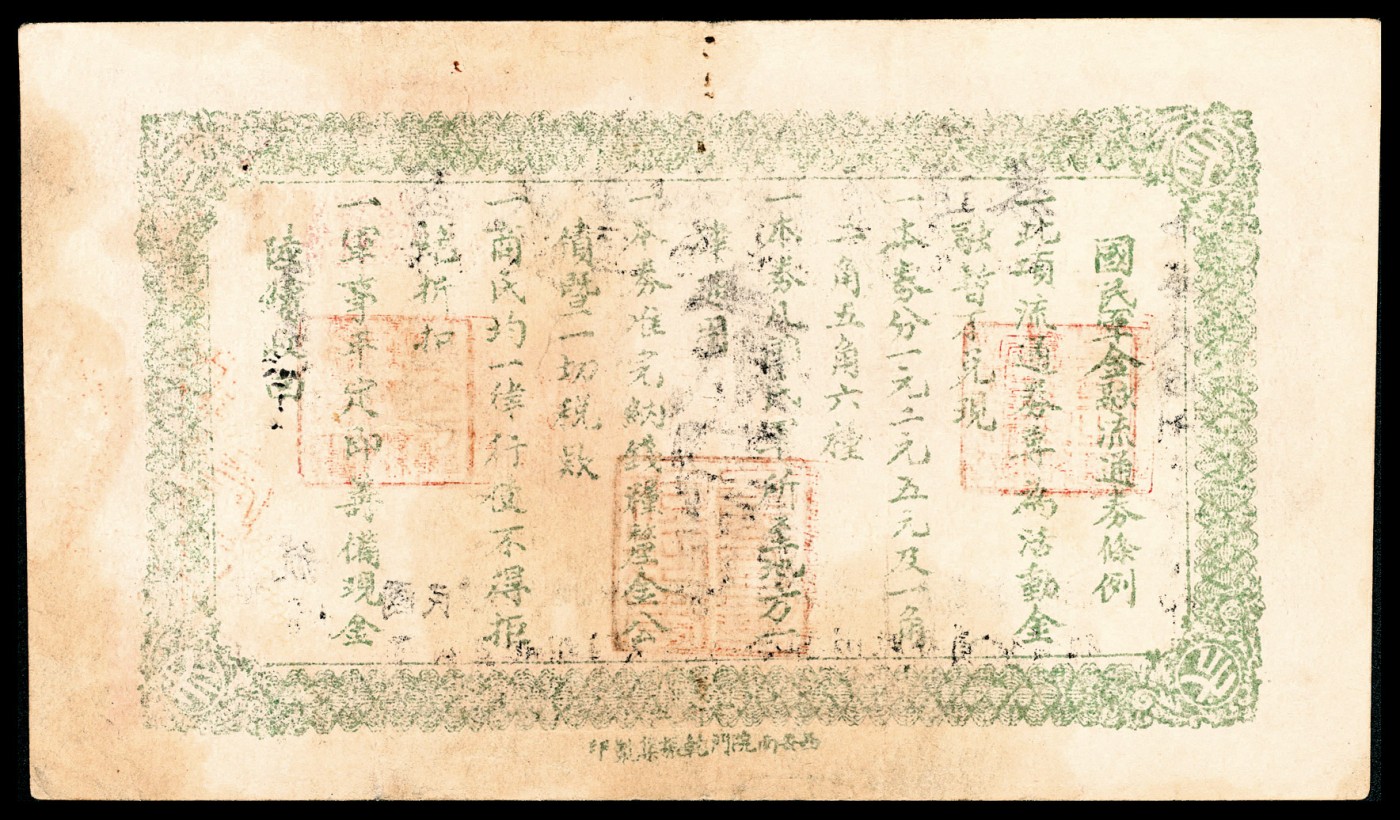 國民軍金融流通券條例
一此項流通券專為活動金
融暫不兌現
一本券分一元二元五元及一角
二角五角六種
一本券凡國民軍所至地方一
律通用
一本券准完納錢糧釐金公
債暨一切稅款
一商民均一律行使不得拒
絕折扣
一軍事平定即籌備現金
陸續收回
西安南院門乾振集製印